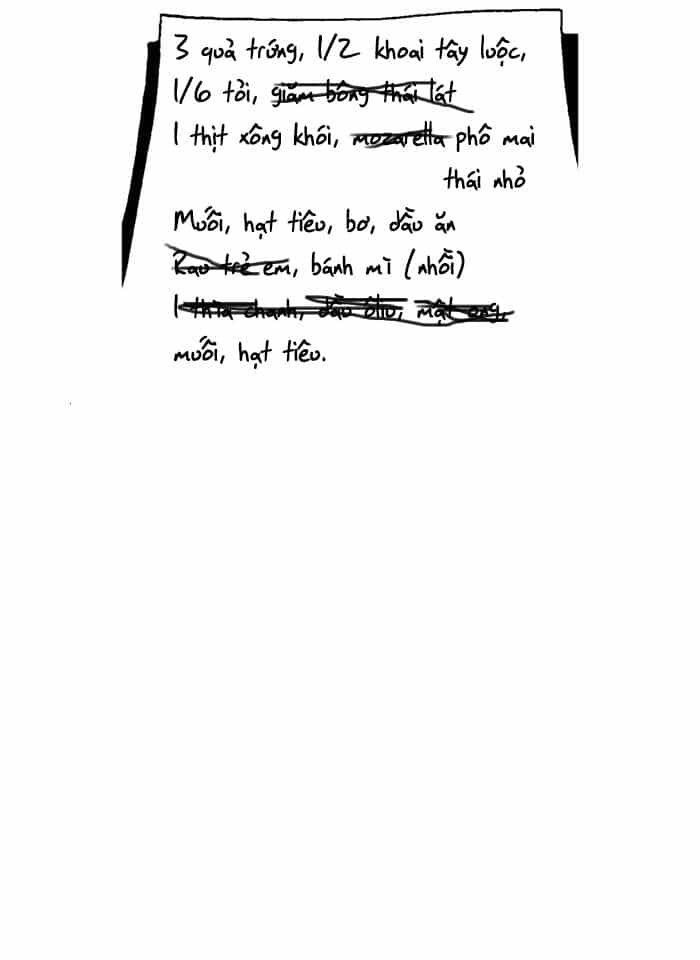 3 quả trứng, 1/2 khoai tây luộc,
1/6 tỏi, giăm bông thái lát
1 thịt xông khói, mozarella phô mai
thái nhỏ
Muối, hạt tiêu, bơ, dầu ăn
Rau trẻ em, bánh mì (nhồi)
1 thìa chanh, dầu ôliu, mật ong,
muối, hạt tiêu.